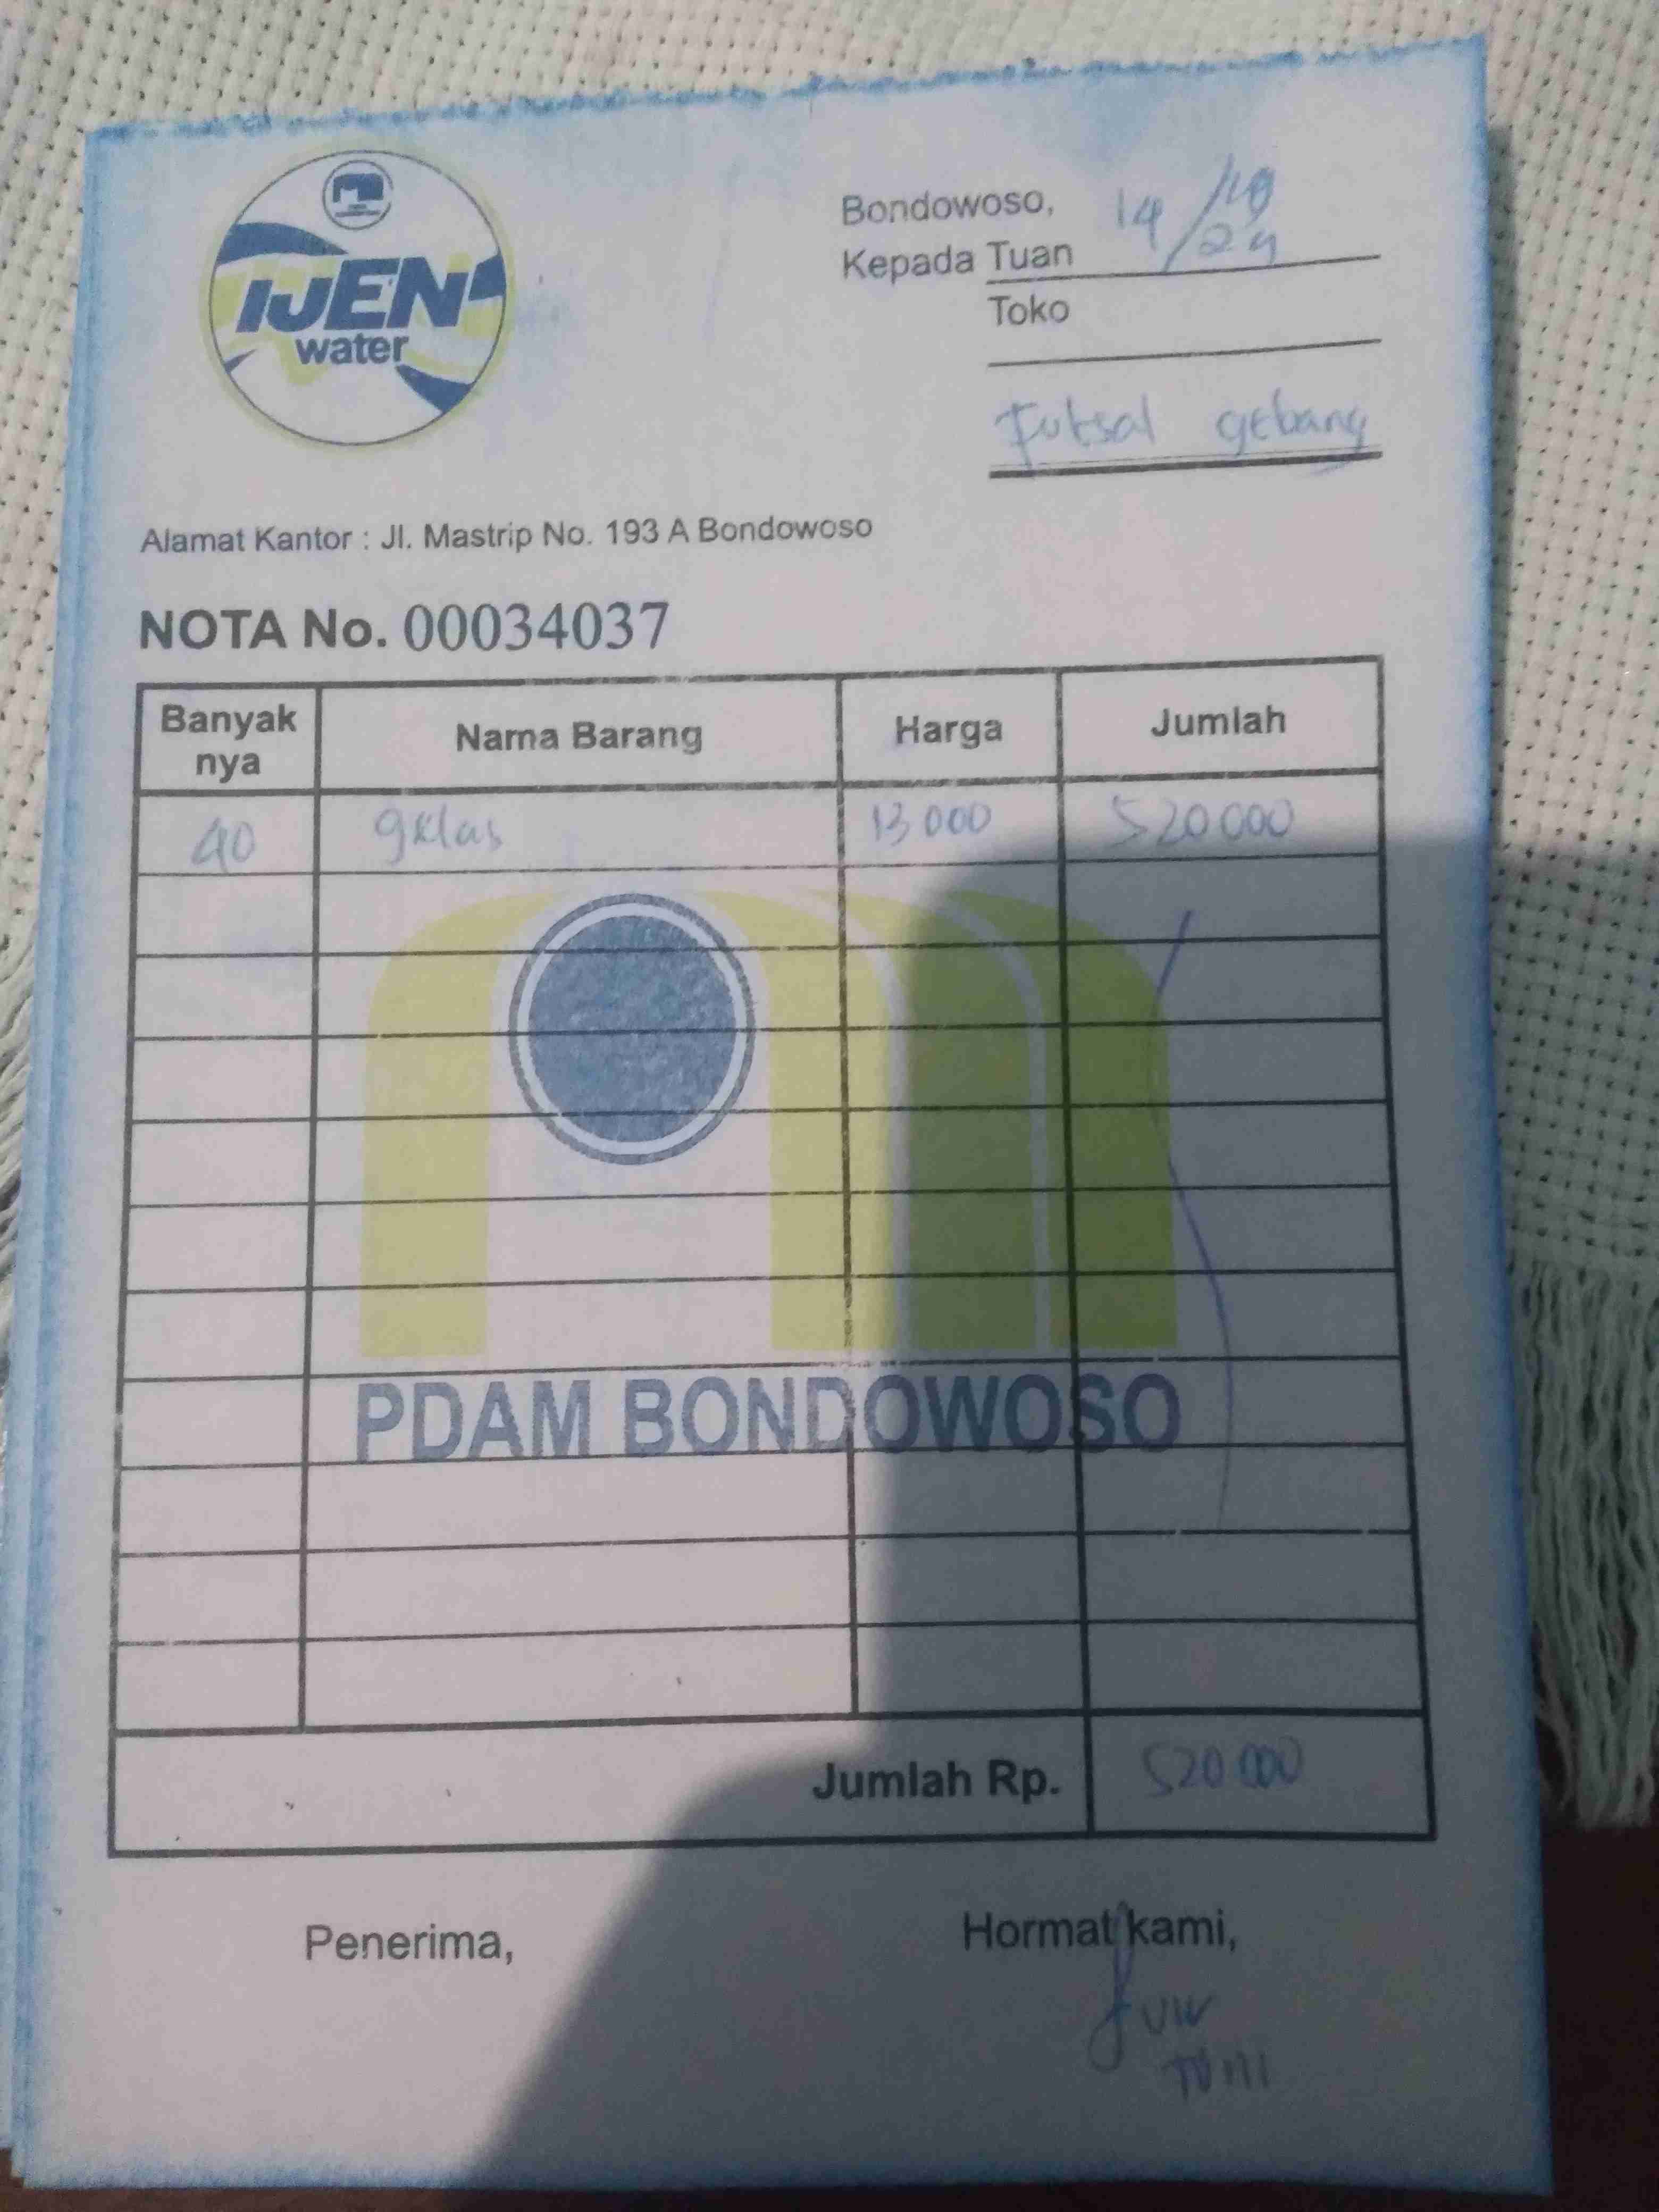 IJEN
water
Bondowoso, 14/10
24
Kepada Tuan
Toko
Futsal gebang
Alamat Kantor : Jl. Mastrip No. 193 A Bondowoso
NOTA No. 00034037
Banyak nya Nama Barang Harga Jumlah
40 gelas 13 000 520 000
PDAM BONDOWOSO
Jumlah Rp. 520 000
Penerima, Hormat kami,